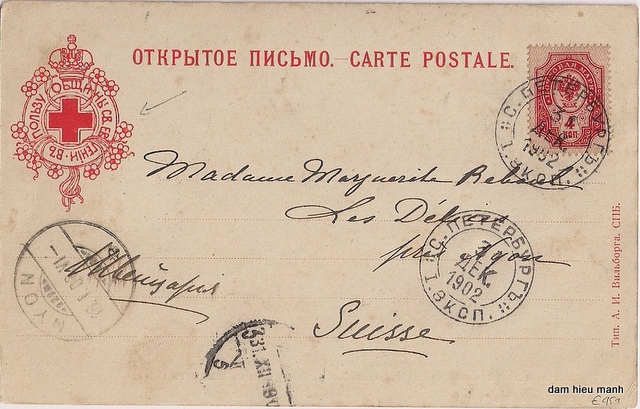 ОТКРЫТОЕ ПИСЬМО.—CARTE POSTALE.
ВЪ ПОЛЬЗУ ОБЩИНЫ СВ. ЕВГЕНІИ
4
КОП.
С. ПЕТЕРБУРГЪ
3
ДЕК.
1902
1 ЭКСП.
Madame Marguerite
Les Délices
près Nyon
Швейцарія
Suisse
С. ПЕТЕРБУРГЪ
3
ДЕК.
1902
1 ЭКСП.
NYON
31.XII
Тип. А. И. Вильборга. СПБ.
dam hieu manh